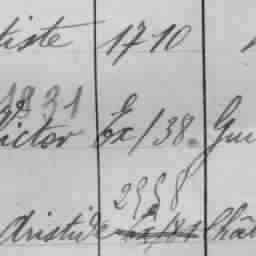 tiste 1710
1831
ictor Ex/38. Gui
2958
Aristide Chât